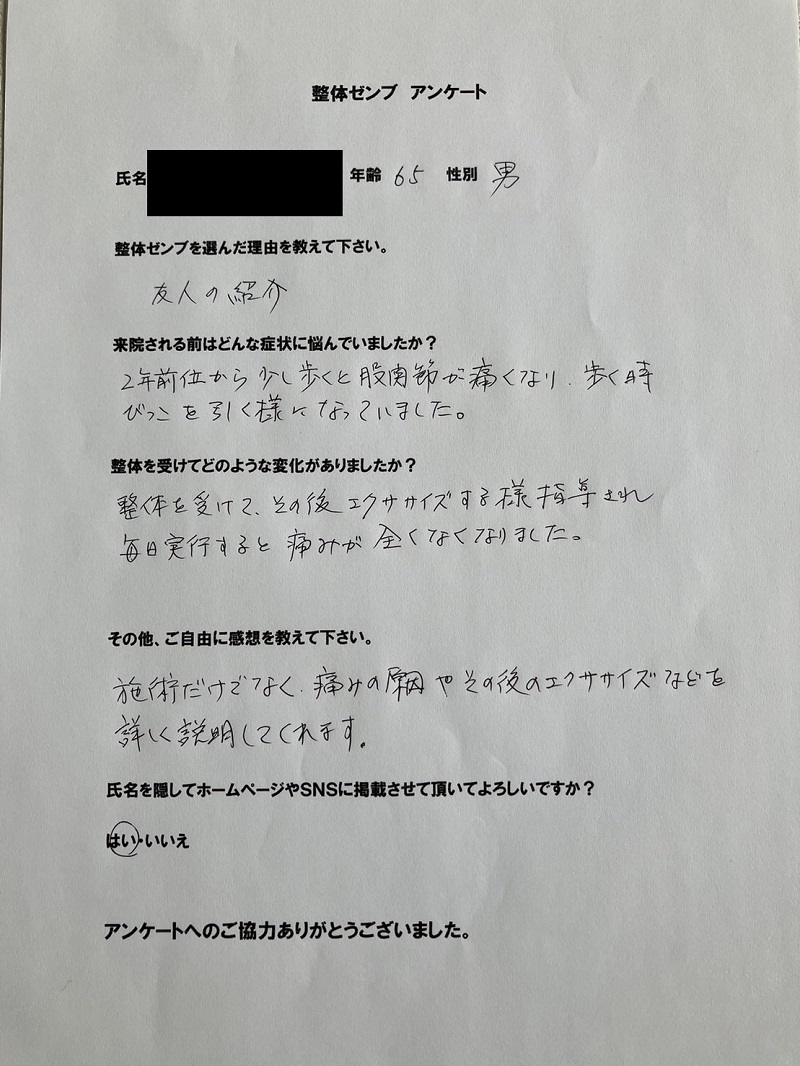 整体ゼンブ アンケート
氏名 年齢 65 性別 男
整体ゼンブを選んだ理由を教えて下さい。
友人の紹介
来院される前はどんな症状に悩んでいましたか？
2年前位から少し歩くと股関節が痛くなり、歩く時
びっこを引く様になっていました。
整体を受けてどのような変化がありましたか？
整体を受けて、その後エクササイズする様指導され
毎日実行すると痛みが全くなくなりました。
その他、ご自由に感想を教えて下さい。
施術だけでなく、痛みの原因やその後のエクササイズなどを
詳しく説明してくれます。
氏名を隠してホームページやSNSに掲載させて頂いてよろしいですか？
はい・いいえ
アンケートへのご協力ありがとうございました。